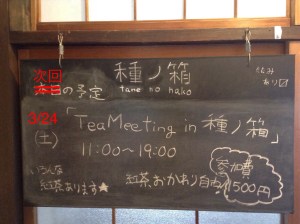 種ノ箱
tane no hako
飲み
あり
次回
本日の予定
3/24
(土)
「TeaMeeting in 種ノ箱」
11:00～19:00
いろんな
紅茶あります★
紅茶おかわり自由
参加費
1500円